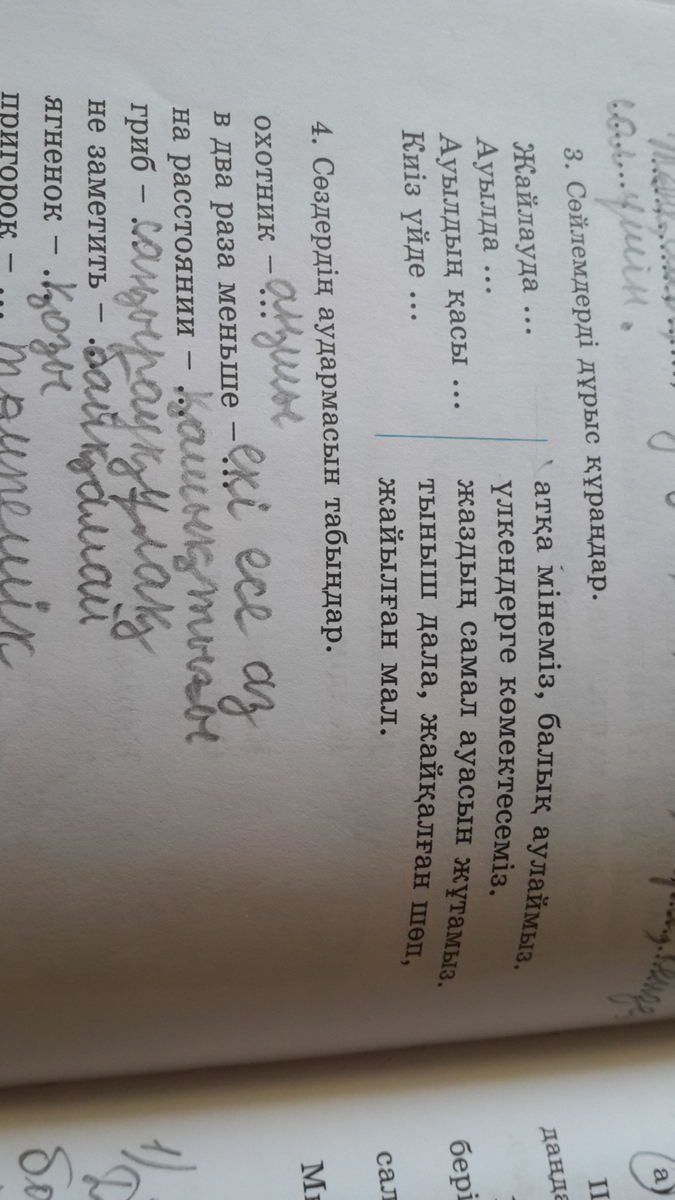 сал...ушін.
3. Сөйлемдерді дұрыс құраңдар.
Жайлауда ... атқа мінеміз, балық аулаймыз.
Ауылда ... үлкендерге көмектесеміз.
Ауылдың қасы ... жаздың самал ауасын жұтамыз.
Киіз үйде ... тыныш дала, жайқалған шөп,
жайылған мал.
4. Сөздердің аудармасын табыңдар.
охотник – ... аңшы
в два раза меньше – ... екі есе аз
на расстоянии – ... қашықтығы
гриб – ... саңырауқұлақ
не заметить – ... байқамай
ягненок – ... қозы
пригорок – ... төмпешік
а)
данда
бері
сал
1)